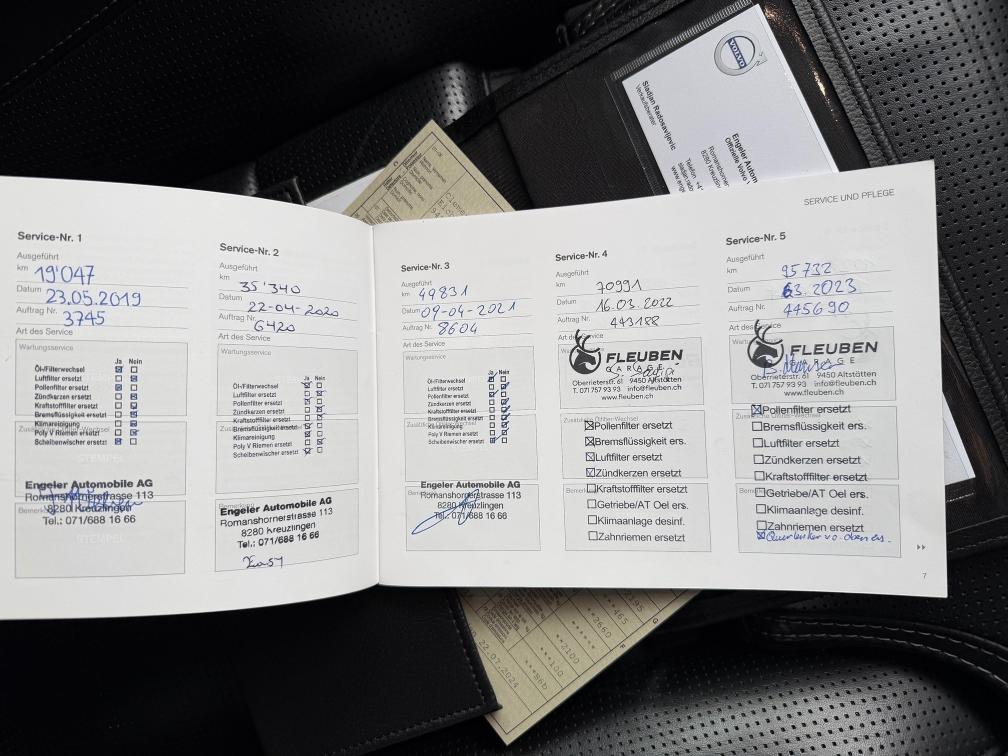 VOLVO
Sladjan Radosavljevic
Verkaufsberater
Engeler Autom
Offizielle Volvo
Romanshorner
8280 Kreuzlin
Telefon +41
SERVICE UND PFLEGE
Service-Nr. 1
Ausgeführt
km 19'047
Datum 23.05.2019
Auftrag Nr. 3745
Art des Service
Wartungsservice
Ja Nein
Öl-/Filterwechsel
Luftfilter ersetzt
Pollenfilter ersetzt
Zündkerzen ersetzt
Kraftstofffilter ersetzt
Bremsflüssigkeit ersetzt
Klimareinigung
Poly V Riemen ersetzt
Scheibenwischer ersetzt
STEMPEL
Engeler Automobile AG
Romanshornerstrasse 113
8280 Kreuzlingen
Tel.: 071/688 16 66
Service-Nr. 2
Ausgeführt
km 35'340
Datum 22-04-2020
Auftrag Nr. 6420
Art des Service
Wartungsservice
Ja Nein
Öl-/Filterwechsel
Luftfilter ersetzt
Pollenfilter ersetzt
Zündkerzen ersetzt
Kraftstofffilter ersetzt
Bremsflüssigkeit ersetzt
Klimareinigung
Poly V Riemen ersetzt
Scheibenwischer ersetzt
Engeler Automobile AG
Romanshornerstrasse 113
8280 Kreuzlingen
Tel.: 071/688 16 66
Service-Nr. 3
Ausgeführt
km 49831
Datum 09-04-2021
Auftrag Nr. 8604
Art des Service
Wartungsservice
Ja Nein
Öl-/Filterwechsel
Luftfilter ersetzt
Pollenfilter ersetzt
Zündkerzen ersetzt
Kraftstofffilter ersetzt
Bremsflüssigkeit ersetzt
Klimareinigung
Poly V Riemen ersetzt
Scheibenwischer ersetzt
Engeler Automobile AG
Romanshornerstrasse 113
8280 Kreuzlingen
Tel.: 071/688 16 66
Service-Nr. 4
Ausgeführt
km 70991
Datum 16.03.2022
Auftrag Nr. 443188
Art des Service
FLEUBEN
GARAGE
Oberrieterstr. 61 9450 Altstätten
T. 071 757 93 93 info@fleuben.ch
www.fleuben.ch
Pollenfilter ersetzt
Bremsflüssigkeit ers.
Luftfilter ersetzt
Zündkerzen ersetzt
Kraftstofffilter ersetzt
Getriebe/AT Oel ers.
Klimaanlage desinf.
Zahnriemen ersetzt
Service-Nr. 5
Ausgeführt
km 95732
Datum 3.2023
Auftrag Nr. 445690
Art des Service
FLEUBEN
GARAGE
Oberrieterstr. 61 9450 Altstätten
T. 071 757 93 93 info@fleuben.ch
www.fleuben.ch
Pollenfilter ersetzt
Bremsflüssigkeit ers.
Luftfilter ersetzt
Zündkerzen ersetzt
Kraftstofffilter ersetzt
Getriebe/AT Oel ers.
Klimaanlage desinf.
Zahnriemen ersetzt
Querlenker vo. oben ers.
7
22.07.2024